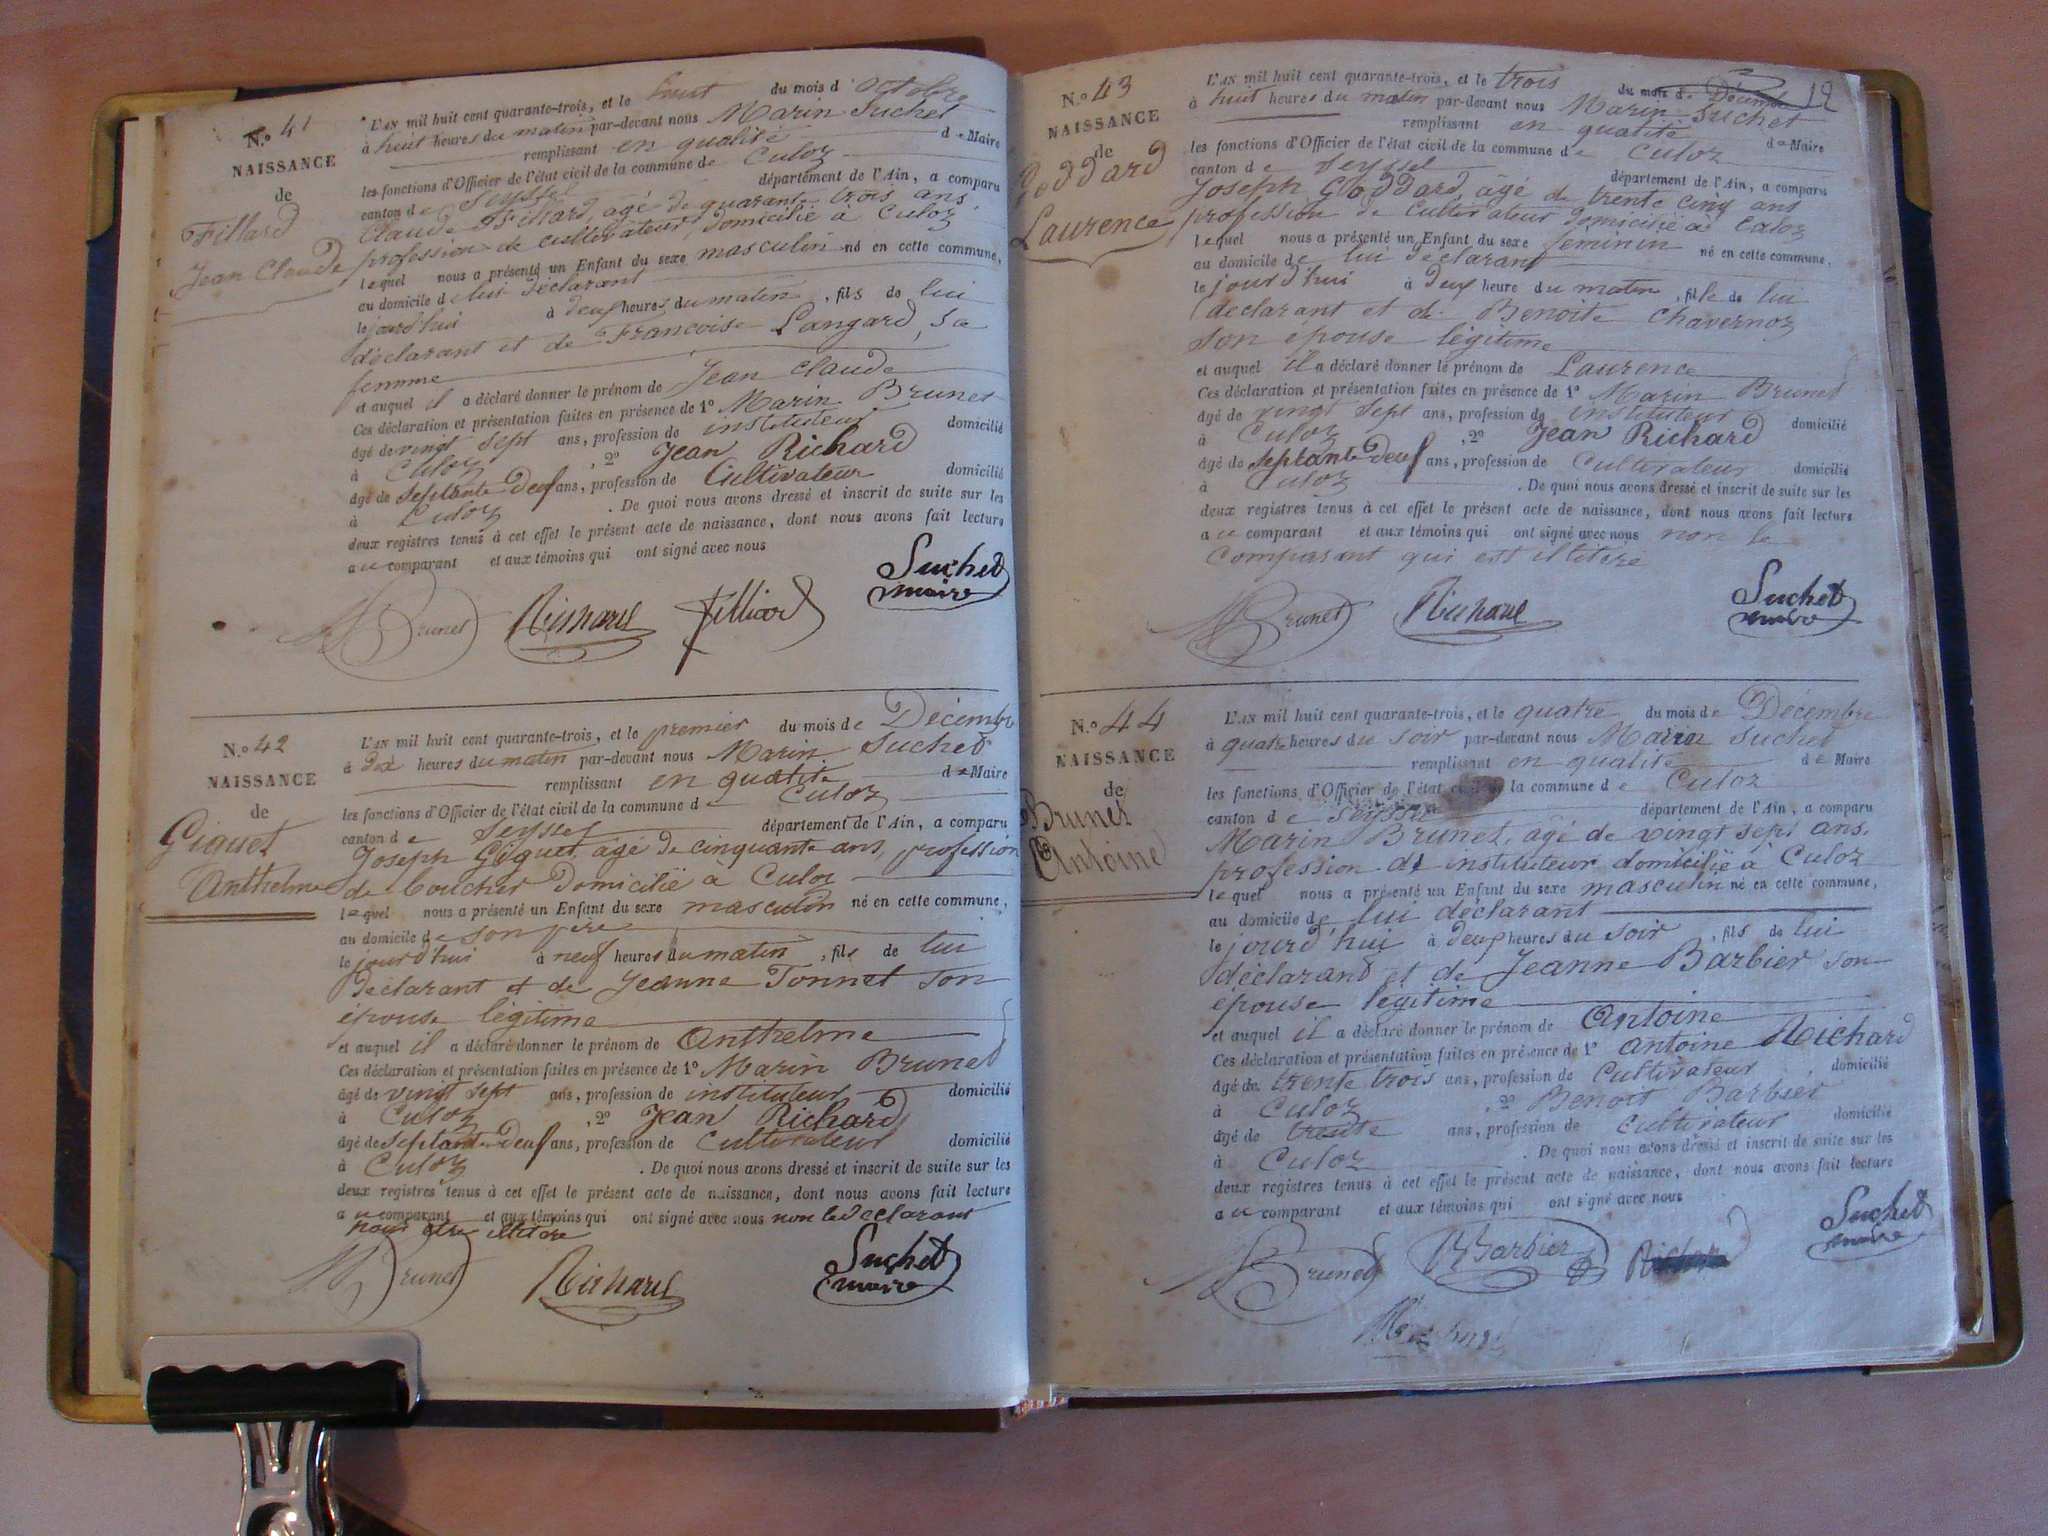 N.o 41
NAISSANCE
de
Fillard
Jean Claude
L'AN mil huit cent quarante-trois, et le huit du mois d'octobre
à huit heures du matin par-devant nous Marin Suchet
remplissant en qualité de Maire
les fonctions d'Officier de l'état civil de la commune de Culoz
canton de Seyssel département de l'Ain, a comparu
Claude Fillard, agé de quarante trois ans,
profession de cultivateur, domicilié à Culoz
lequel nous a présenté un Enfant du sexe masculin né en cette commune,
au domicile de lui déclarant
le jourd'hui à deux heures du matin, fils de lui
déclarant et de Francoise Langard, sa
femme
et auquel il a déclaré donner le prénom de Jean Claude
Ces déclaration et présentation faites en présence de 1o Marin Brunet
âgé de vingt sept ans, profession de instituteur domicilié
à Culoz, 2o Jean Richard
âgé de septante deux ans, profession de Cultivateur domicilié
à Culoz. De quoi nous avons dressé et inscrit de suite sur les
deux registres tenus à cet effet le présent acte de naissance, dont nous avons fait lecture
au comparant et aux témoins qui ont signé avec nous
M Brunet Richard Filliard Suchet
maire
N.o 42
NAISSANCE
de
Giguet
Anthelme
L'AN mil huit cent quarante-trois, et le premier du mois de Décembre
à dix heures du matin par-devant nous Marin Suchet
remplissant en qualité de Maire
les fonctions d'Officier de l'état civil de la commune de Culoz
canton de Seyssel département de l'Ain, a comparu
Joseph Giguet, agé de cinquante ans, profession
de boucher domicilié à Culoz
lequel nous a présenté un Enfant du sexe masculin né en cette commune,
au domicile de son père
le jourd'hui à neuf heures du matin, fils de lui
déclarant et de Jeanne Tonnet son
épouse légitime
et auquel il a déclaré donner le prénom de Anthelme
Ces déclaration et présentation faites en présence de 1o Marin Brunet
âgé de vingt sept ans, profession de instituteur domicilié
à Culoz, 2o Jean Richard
âgé de septante deux ans, profession de cultivateur domicilié
à Culoz. De quoi nous avons dressé et inscrit de suite sur les
deux registres tenus à cet effet le présent acte de naissance, dont nous avons fait lecture
au comparant et aux témoins qui ont signé avec nous non le déclarant
pour être illitere
M Brunet Richard Suchet
maire
12
N.o 43
NAISSANCE
de
Goddard
Laurence
L'AN mil huit cent quarante-trois, et le trois du mois de Décembre
à huit heures du matin par-devant nous Marin Suchet
remplissant en qualité de Maire
les fonctions d'Officier de l'état civil de la commune de Culoz
canton de Seyssel département de l'Ain, a comparu
Joseph Goddard, âgé de trente cinq ans
profession de cultivateur domicilié à Culoz
lequel nous a présenté un Enfant du sexe féminin né en cette commune,
au domicile de lui déclarant
le jourd'hui à deux heure du matin, fille de lui
déclarant et de Benoite Chavernoz
son épouse légitime
et auquel il a déclaré donner le prénom de Laurence
Ces déclaration et présentation faites en présence de 1o Marin Brunet
âgé de vingt sept ans, profession de instituteur domicilié
à Culoz, 2o Jean Richard
âgé de septante deux ans, profession de Cultivateur domicilié
à Culoz. De quoi nous avons dressé et inscrit de suite sur les
deux registres tenus à cet effet le présent acte de naissance, dont nous avons fait lecture
au comparant et aux témoins qui ont signé avec nous non le
Comparant qui est illitere
M Brunet Richard Suchet
maire
N.o 44
NAISSANCE
de
Brunet
Antoine
L'AN mil huit cent quarante-trois, et le quatre du mois de Décembre
à quatre heures du soir par-devant nous Marin Suchet
remplissant en qualité de Maire
les fonctions d'Officier de l'état civil de la commune de Culoz
canton de Seyssel département de l'Ain, a comparu
Marin Brunet, âgé de vingt sept ans,
profession de instituteur domicilié à Culoz
lequel nous a présenté un Enfant du sexe masculin né en cette commune,
au domicile de lui déclarant
le jourd'hui à deux heures du soir, fils de lui
déclarant et de Jeanne Barbier son
épouse légitime
et auquel il a déclaré donner le prénom de Antoine
Ces déclaration et présentation faites en présence de 1o Antoine Richard
âgé de trente trois ans, profession de cultivateur domicilié
à Culoz, 2o Benoit Barbier
âgé de trente ans, profession de cultivateur domicilié
à Culoz. De quoi nous avons dressé et inscrit de suite sur les
deux registres tenus à cet effet le présent acte de naissance, dont nous avons fait lecture
au comparant et aux témoins qui ont signé avec nous
M Brunet B Barbier Suchet
maire